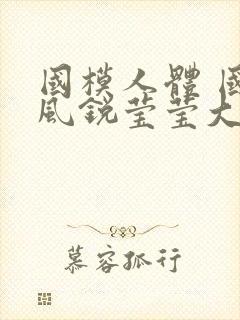 國模人體 國
風銳瑩瑩大
慕容孤行